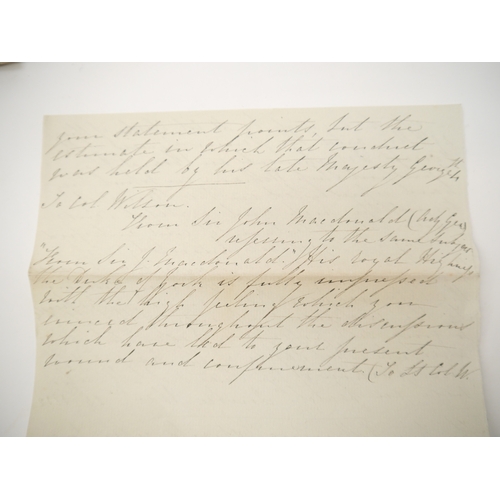 your statement points, but the
estimate in which that conduct
was held by his late Majesty George 4th
To Col Wilson.
From Sir John Macdonald (Adj Gen)
referring to the same subject
"From Sir J. Macdonald." His royal Highness
the Duke of York is fully impressed
with the high feeling which you
evinced throughout the discussions
which have led to your present
wound and confinement (To Lt Col W.